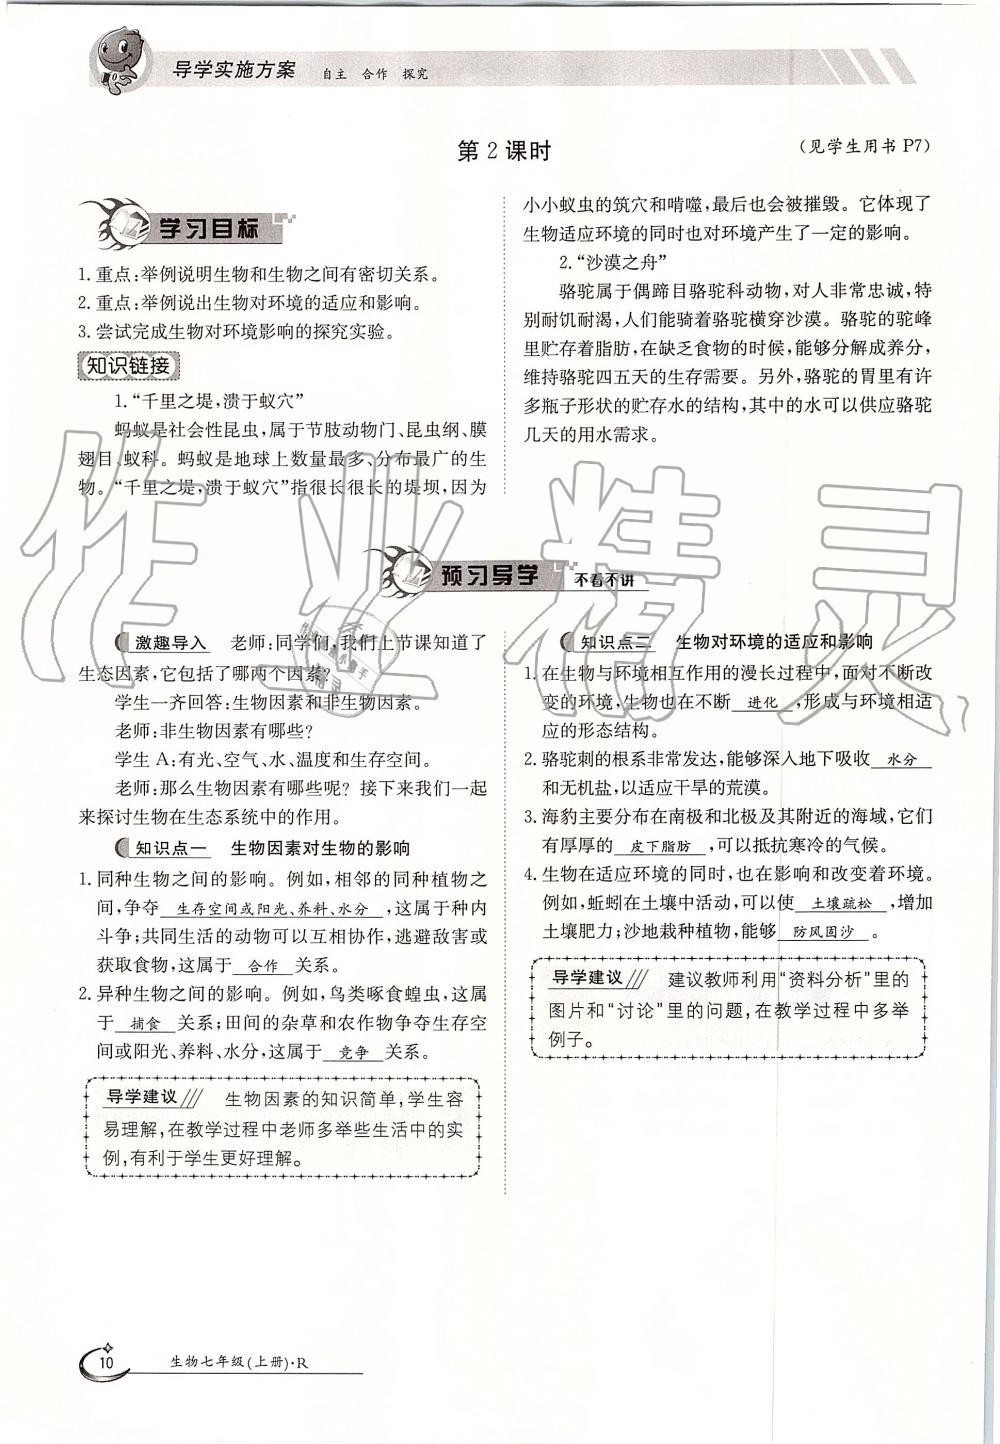 导学实施方案 自主 合作 探究
第2课时
(见学生用书P7)
学习目标
1.重点:举例说明生物和生物之间有密切关系。
2.重点:举例说出生物对环境的适应和影响。
3.尝试完成生物对环境影响的探究实验。
知识链接
1.“千里之堤,溃于蚁穴”
蚂蚁是社会性昆虫,属于节肢动物门、昆虫纲、膜
翅目、蚁科。蚂蚁是地球上数量最多、分布最广的生
物。“千里之堤,溃于蚁穴”指很长很长的堤坝,因为
小小蚁虫的筑穴和啃噬,最后也会被摧毁。它体现了
生物适应环境的同时也对环境产生了一定的影响。
2.“沙漠之舟”
骆驼属于偶蹄目骆驼科动物,对人非常忠诚,特
别耐饥耐渴,人们能骑着骆驼横穿沙漠。骆驼的驼峰
里贮存着脂肪,在缺乏食物的时候,能够分解成养分,
维持骆驼四五天的生存需要。另外,骆驼的胃里有许
多瓶子形状的贮存水的结构,其中的水可以供应骆驼
几天的用水需求。
预习导学 不看不讲
激趣导入 老师:同学们,我们上节课知道了
生态因素,它包括了哪两个因素?
学生一齐回答:生物因素和非生物因素。
老师:非生物因素有哪些?
学生A:有光、空气、水、温度和生存空间。
老师:那么生物因素有哪些呢? 接下来我们一起
来探讨生物在生态系统中的作用。
知识点一 生物因素对生物的影响
1.同种生物之间的影响。例如,相邻的同种植物之
间,争夺 生存空间或阳光、养料、水分 ,这属于种内
斗争;共同生活的动物可以互相协作,逃避敌害或
获取食物,这属于 合作 关系。
2.异种生物之间的影响。例如,鸟类啄食蝗虫,这属
于 捕食 关系;田间的杂草和农作物争夺生存空
间或阳光、养料、水分,这属于 竞争 关系。
导学建议 生物因素的知识简单,学生容
易理解,在教学过程中老师多举些生活中的实
例,有利于学生更好理解。
知识点二 生物对环境的适应和影响
1.在生物与环境相互作用的漫长过程中,面对不断改
变的环境,生物也在不断 进化 ,形成与环境相适
应的形态结构。
2.骆驼刺的根系非常发达,能够深入地下吸收 水分
和无机盐,以适应干旱的荒漠。
3.海豹主要分布在南极和北极及其附近的海域,它们
有厚厚的 皮下脂肪 ,可以抵抗寒冷的气候。
4.生物在适应环境的同时,也在影响和改变着环境。
例如,蚯蚓在土壤中活动,可以使 土壤疏松 ,增加
土壤肥力;沙地栽种植物,能够 防风固沙 。
导学建议 建议教师利用“资料分析”里的
图片和“讨论”里的问题,在教学过程中多举
例子。
作业精灵
10 生物七年级(上册)·R